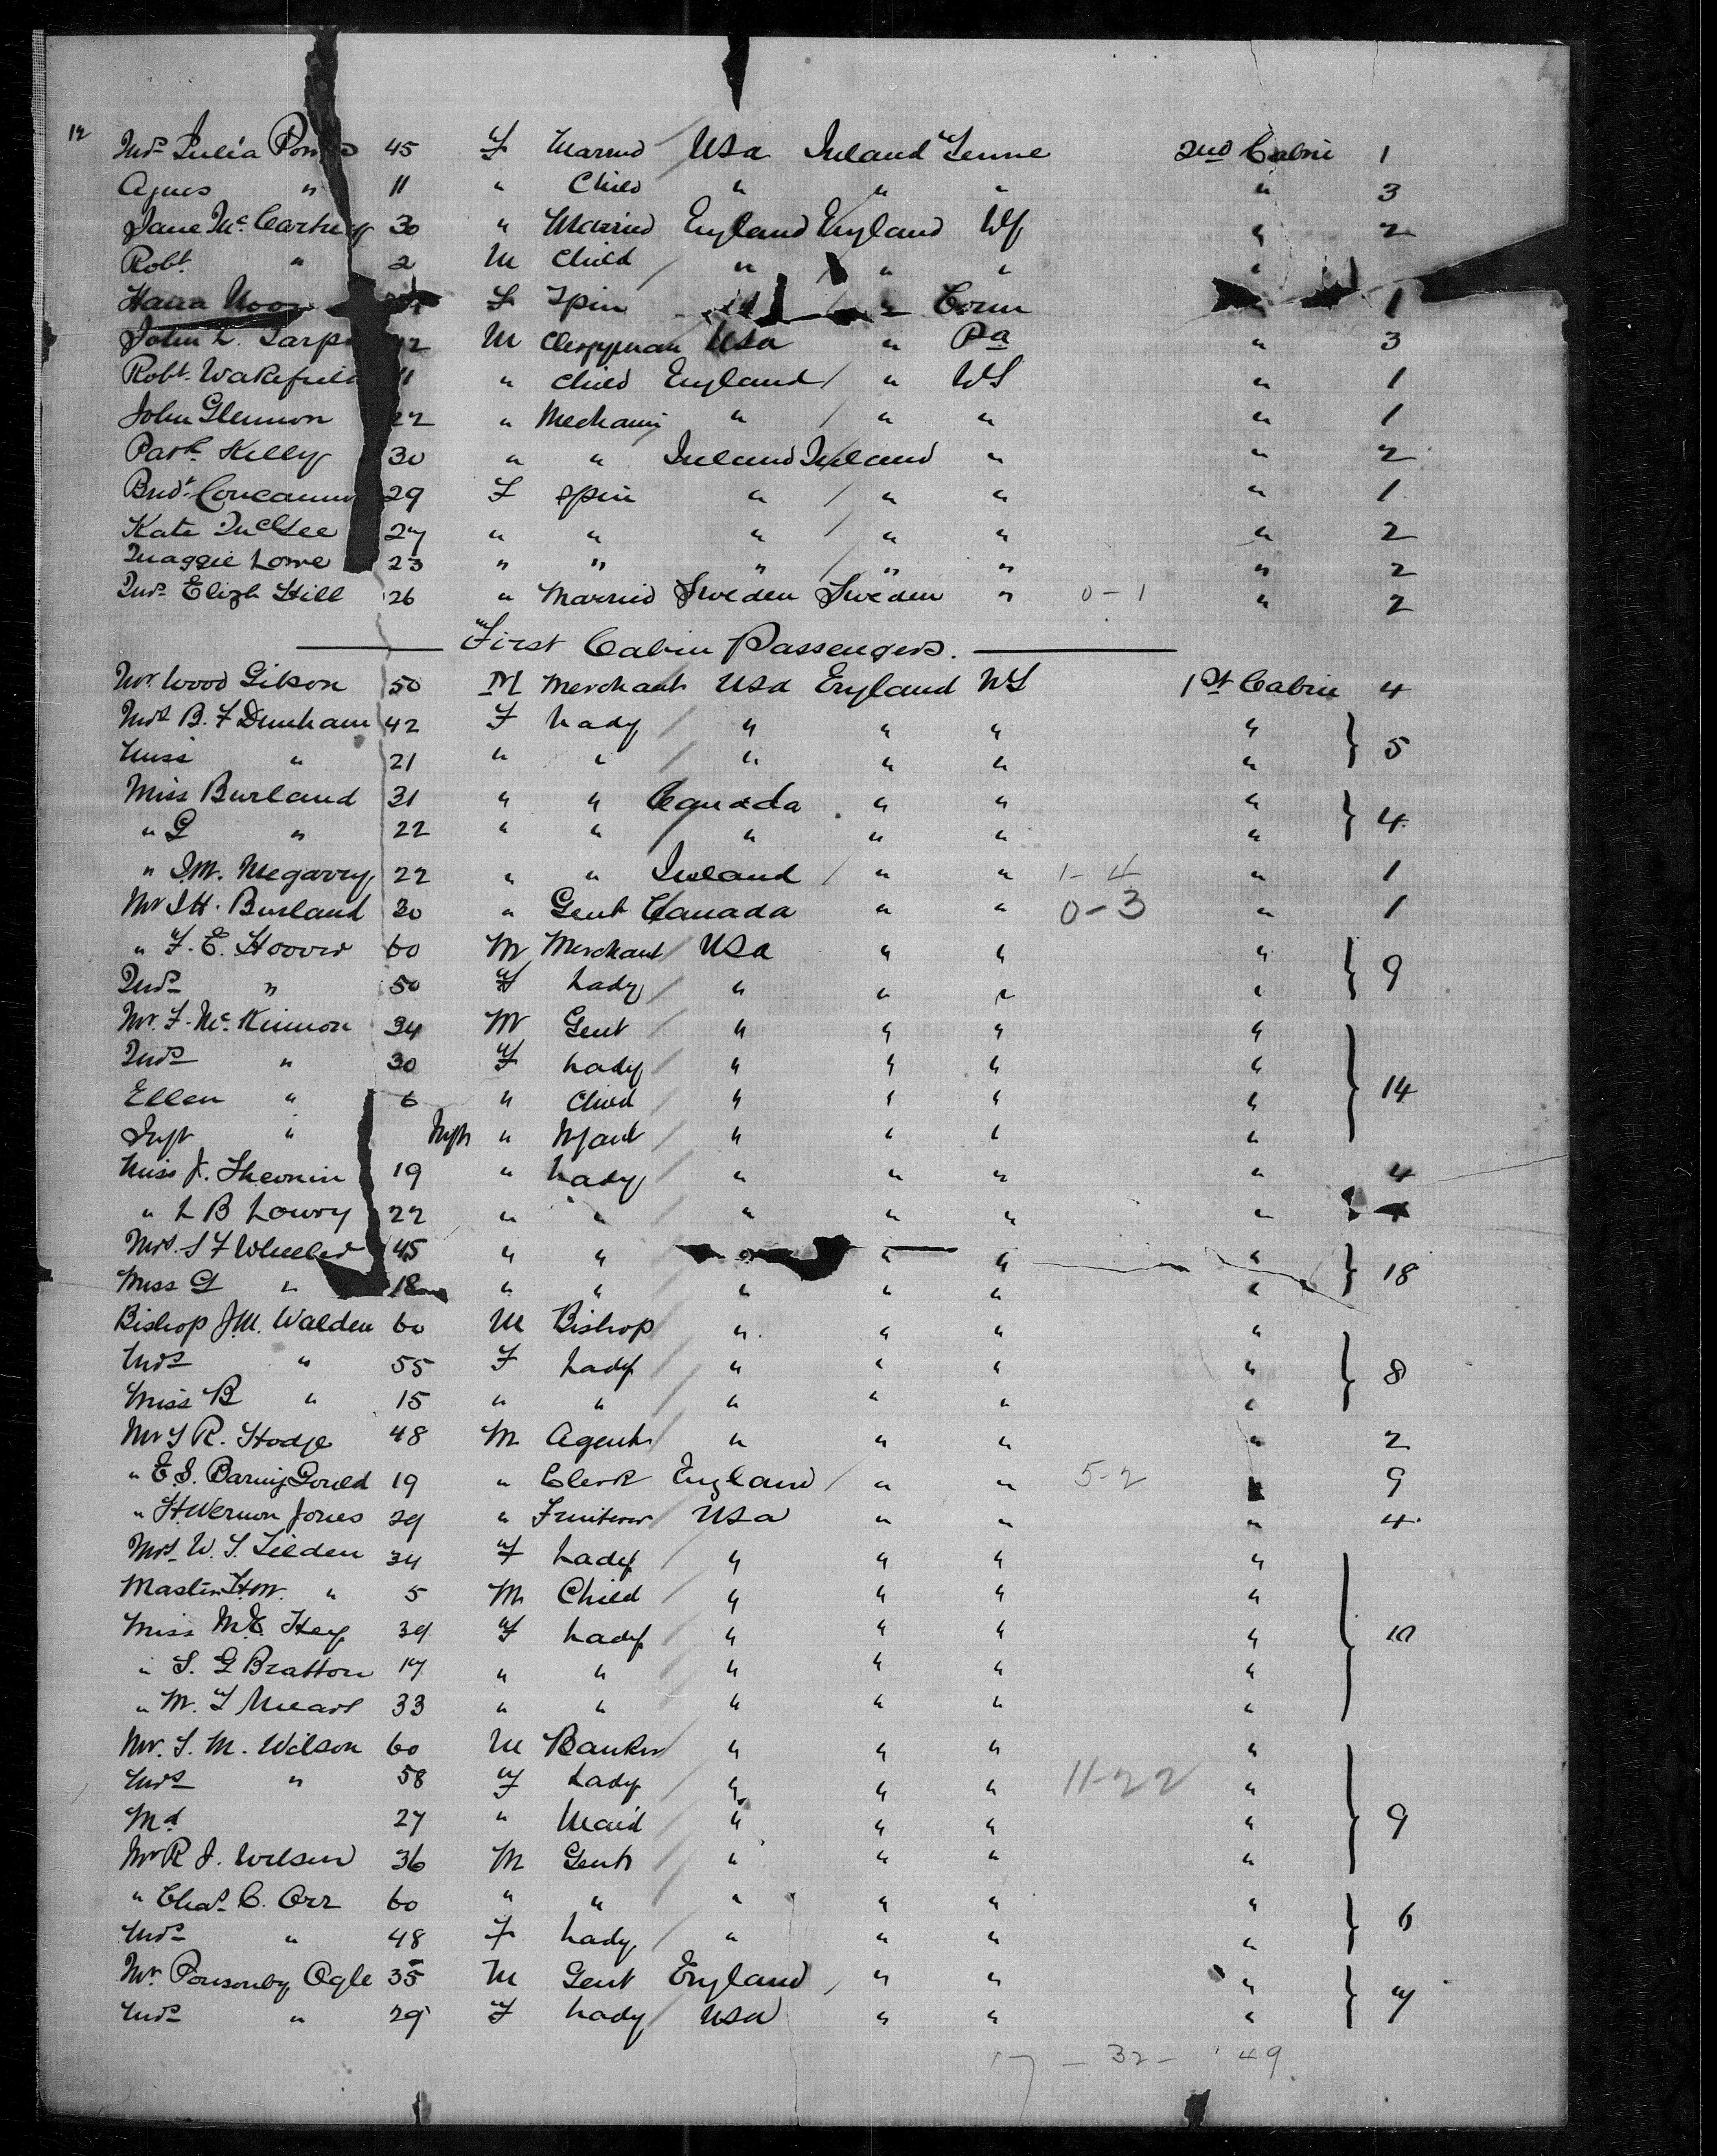 12
Mrs Julia 45 F Married USA Ireland Tenne 2nd Cabin 1
Agnes " 11 " Child " " " " 3
Jane McCarthy 30 " Married England England NY " 2
Robt " 2 M Child " " " "
F Spin " Conn " 1
John L. M USA " Pa " 3
Robt. Wakefield 11 " Child England " NY " 1
John Glennon 22 " Mechanic " " " " 1
Patk Kelly 30 " " Ireland Ireland " " 2
29 F Spin " " " " 1
Kate McGee 27 " " " " " " 2
Maggie Lowe 23 " " " " " " 2
Mrs Elizh Hill 26 " Married Sweden Sweden " 0-1 " 2
First Cabin Passengers.
Mr. Wood Gibson 50 M Merchant USA England NY 1st Cabin 4
Mrs B. F Dunham 42 F Lady " " " " } 5
Miss " 21 " " " " " "
Miss Burland 31 " " Canada " " " } 4
" G " 22 " " " " " "
" Megarry 22 " " Ireland " " 1-4 " 1
Mr J H. Burland 30 " Gent Canada " " 0-3 " 1
" F. E. Hoover 60 M Merchant USA " " " } 9
Mrs " 50 F Lady " " " "
Mr. F. McKinnon 34 M Gent " " " " } 14
Mrs " 30 F Lady " " " "
Ellen " 6 " Child " " " "
Inft " Inft " Infant " " " "
Miss J. 19 " Lady " " " " 4
" L B Lowry 22 " " " " " "
Mrs. S F Wheeler 45 " " " " " } 18
Miss G " 18 " " " " " "
Bishop J.M. Walden 60 M Bishop " " " " } 8
Mrs " 55 F Lady " " " "
Miss B " 15 " " " " " "
Mr R. Hodge 48 M Agent " " " " 2
" E. S. Baring Gould 19 " Clerk England " " 5-2 " 9
" H. Vernon Jones 29 " Fruiterer USA " " " 4
Mrs. W. T. Tilden 34 F Lady " " " " } 10
Master H.W. " 5 M Child " " " "
Miss M.E. Hey 39 F Lady " " " "
" S. G Bratton 17 " " " " " "
" M. 33 " " " " " "
Mr. S. M. Wilson 60 M Banker " " " " } 9
Mrs " 58 F Lady " " " 11-22 "
Md 27 " Maid " " " "
Mr R J. Wilson 36 M Gent " " " "
" Chas C. Orr 60 " " " " " " } 6
Mrs " 48 F Lady " " " "
Mr. Ponsonby Ogle 35 M Gent England " " " } 7
Mrs " 29 F Lady USA " " "
17 - 32 - 49